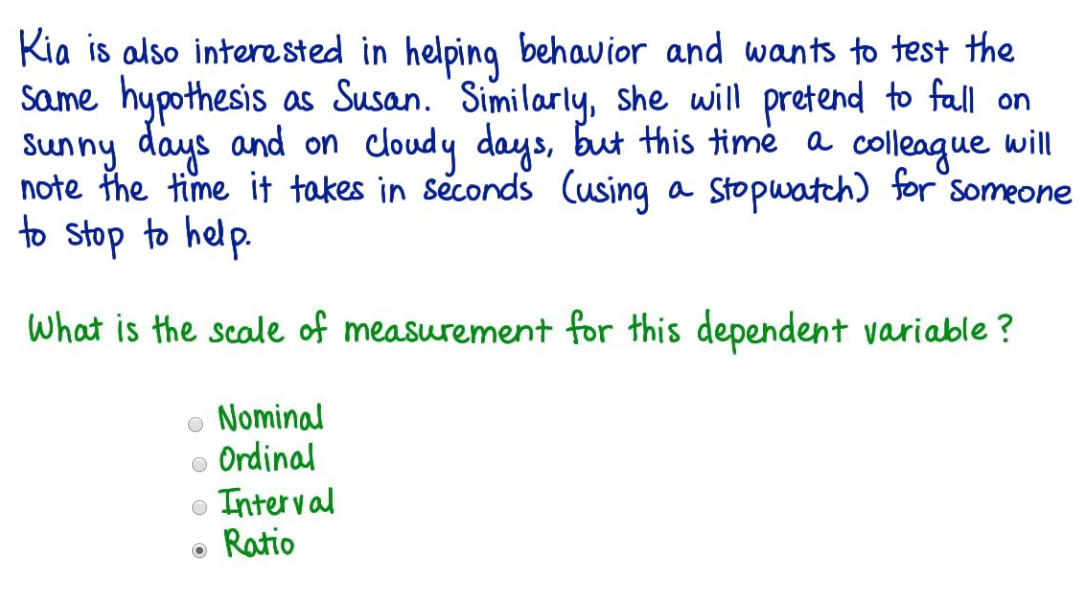 Kia is also interested in helping behavior and wants to test the
same hypothesis as Susan. Similarly, she will pretend to fall on
sunny days and on cloudy days, but this time a colleague will
note the time it takes in seconds (using a stopwatch) for someone
to stop to help.
What is the scale of measurement for this dependent variable?
Nominal
Ordinal
Interval
Ratio